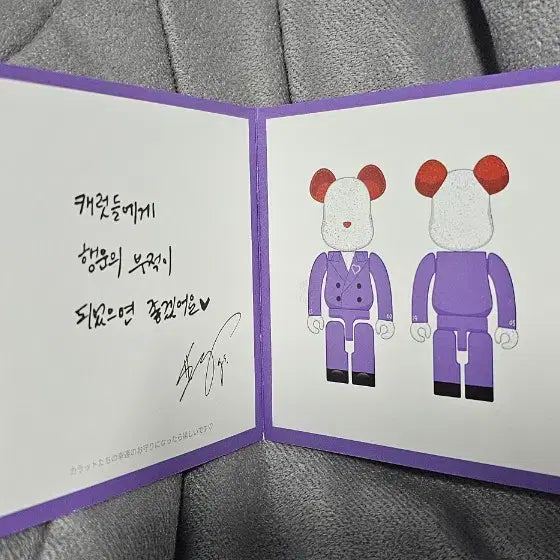 캐럿들에게
행운의 부적이
되었으면 좋겠어요♥
カラットたちの幸運のお守りになったら嬉しいです♡